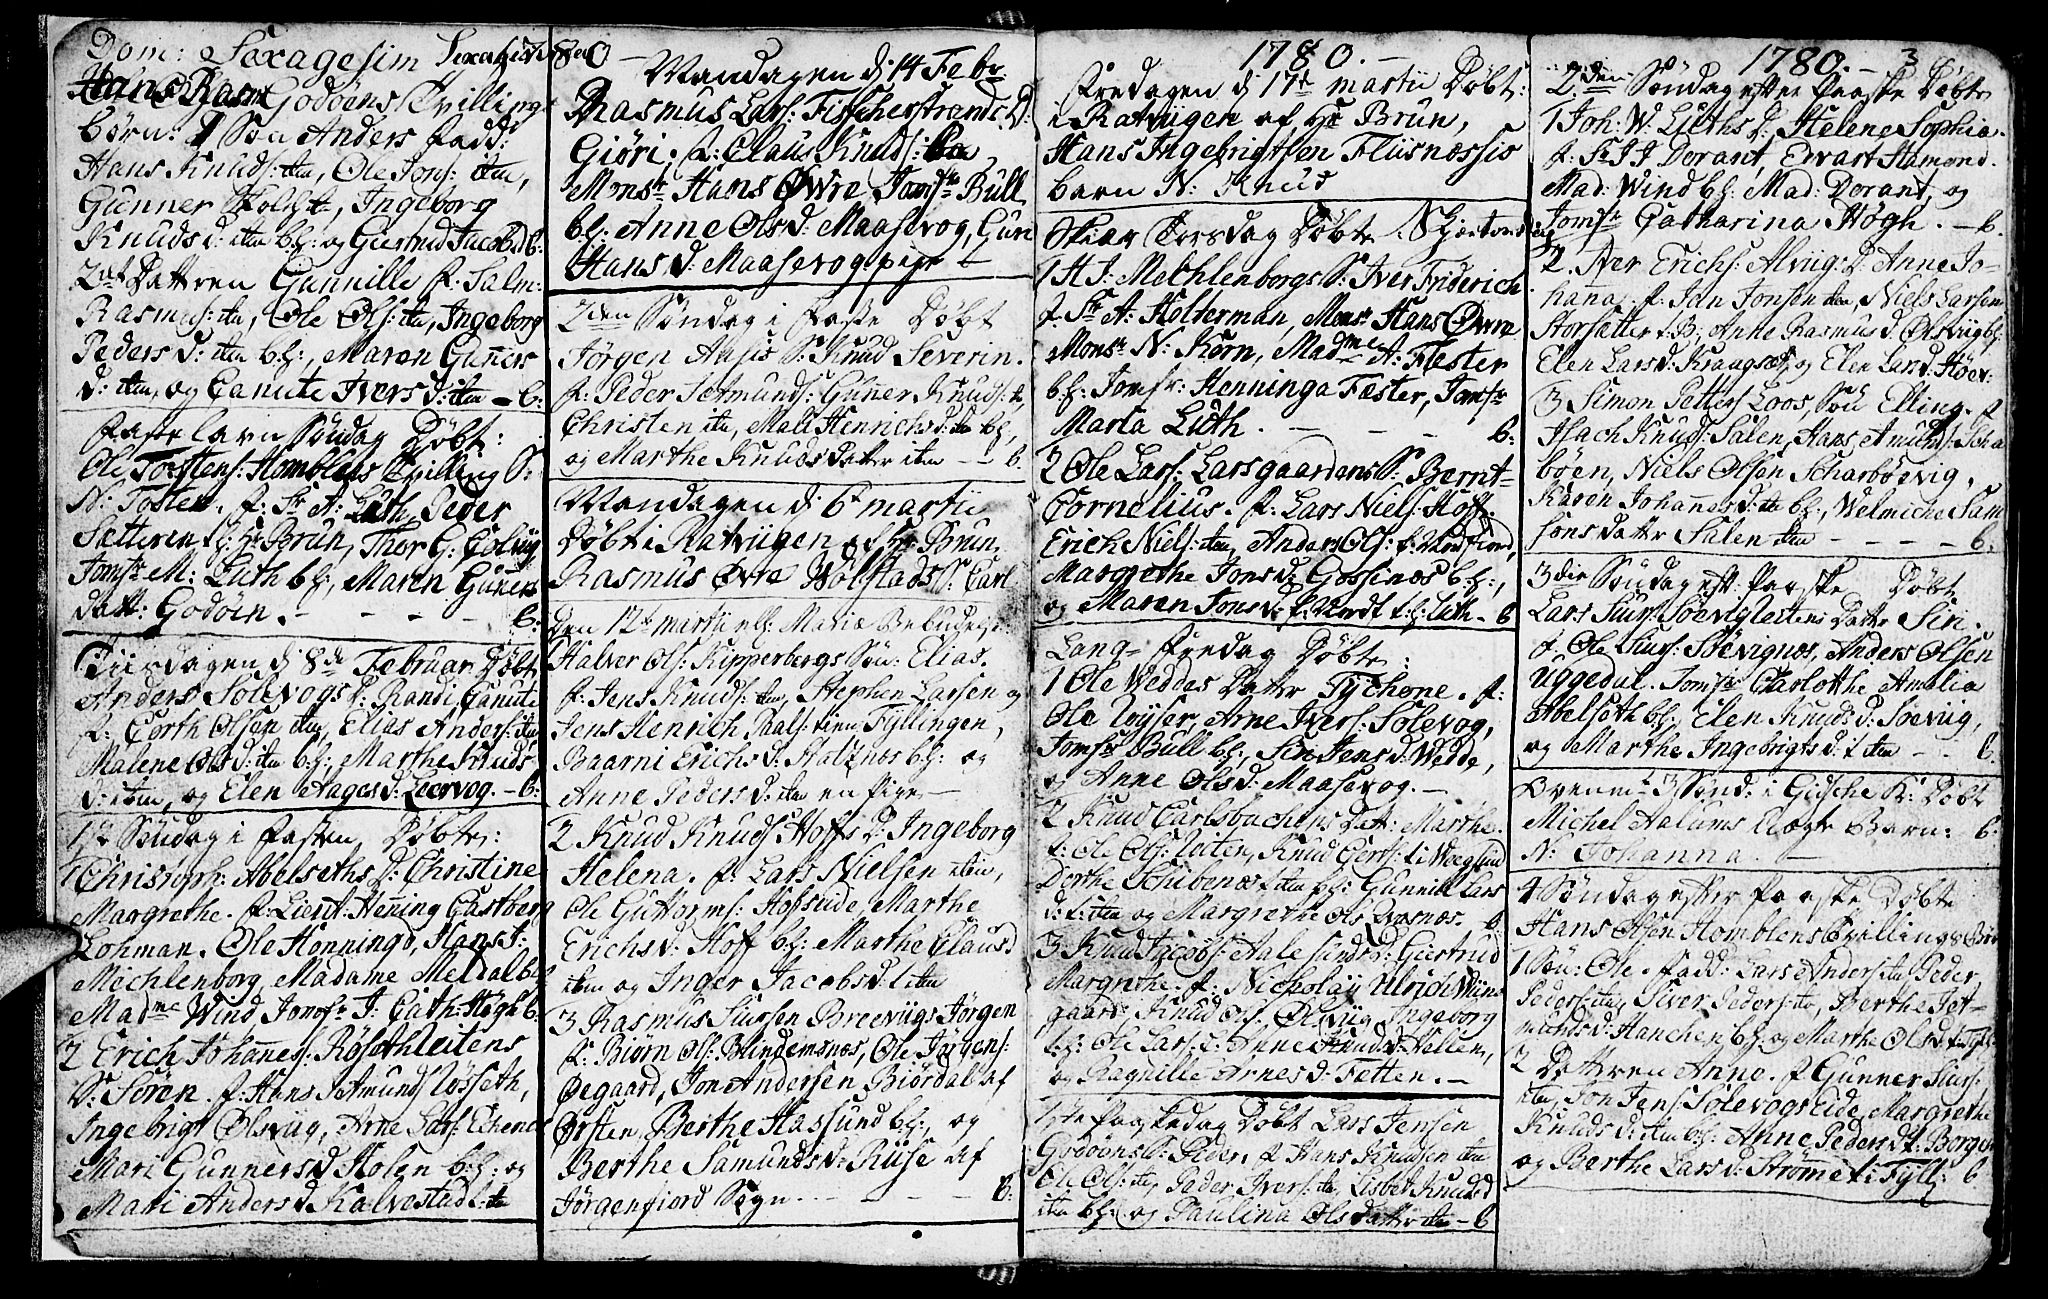 Dom: Sexagesim
1780 –
Hans Rasm Godöens Tvilling
börn: 1 Søn Anders fadd:
Hans Knuds: iten, Ole Jons: iten,
Gunner Iten, Ingeborg
Knuds d: iten b.f: og Giertrud Jacobsd b:
2 Dattren Gunnille f: Salm:
Rasmus: iten, Ole Ols: iten, Ingeborg
Peders d: iten b.f:, Maren Guners
d: iten, og Canute Ivers d: iten – b:
Fastelavn Søndag Döbt:
Ole Torstens: Homblens Tvilling S:
N: Tosten. f: Sr A: Luth, Peder
Sætteren, Hr Brun, Thor G:
Jomfr M: Luth b.f:, Maren Guners
datt: Godöen. – – – b:
Tiirsdagen d: 8de Februar Döbt
Anders Solevogs D: Randi Canute
f: Corth Olsen iten, Elias Anders: iten
Malene Ols d: iten b.f:, Marthe Knuds
d: iten, og Elen Aages d: Leervog. – b:
1te Søndag i Fasten Döbte:
1 Christoph: Abelsæths D: Christine
Margrethe. f: Lieut: Hening Castberg
Lohman. Ole Honningd, Hans J:
Mechlenborg, Madame Meldal b.f
Madme Wind, Jomfr J: Cath: Høgh b:
2 Erich Johannes: Rösethleitens
S: Soren. f: Hans Amunds Lösseth,
Ingebrigt Olsviig, Arne Lars: Echenes
Mari Gunners d Holen b.f: og
Mari Anders d Kalvestad t: te
Mandagen d: 14 Febr
Rasmus Lars: Fischerstrands D:
Giöri. f: Claus Knuds:
Monsr Hans Øvre, Jomfr Bull
b.f: Anne Ols d: Maasevog, Guri
Hans d: Maasevog pige –
2den Søndag i Faste Döbt
Jörgen Aasis S: Knud Severin.
f: Peder Setmunds: Guner Knuds: t,
Christen iten, Mali Henrichs d: te b.f,
og Marthe Knuds Datter iten – – b.
Mandagen d: 6te martii
Döbt i Ratviigen af Hr Brun,
Rasmus Øvre Wolstads S: Carl
Den 12te martii Mariæ Bebudelse:
Halver Ols: Kipperbergs Søn: Elias.
f: Jens Knuds: iten, Stephen Larsen og
Jens Henrich Fyllingen,
Baarni Erichs d: b.f: og
Anne Peders d: iten en pige –
2 Knud Knuds Hoffs D: Ingeborg
Helena. f. Lars Nielsen iten,
Ole Guttorms: Hofside, Marthe
Erichs d. Hoff b.f: Marthe Clausd
iten og Inger Jacobs d: iten
3 Rasmus Siursen Breeviigs Jörgen
f: Biörn Ols: Blindemsnes, Ole Jörgens:
Øegaard, Jon Andersen Biördal af
Örsten, Berthe Hassund b.f:, og
Berthe Samunds d: Riise af
Jörgenfiord Sogn. – – – b:
1780. –
Fredagen d 17de martii Döbt:
i Ratviigen af Hr Brun,
Hans Ingebrigtsen Fliisnæssis
barn N: Knud
Skier Torsdag Döbte
1 H J: Mechlenborgs S: Iver Friderich
f. Sr A: Holterman, Monsr Hans Øvre
Monsr N: Korn, Madme A: Fæster
b.f: Jomfr: Henninga Fæster, Jomfr
Marta Luth. – – – b:
2 Ole Lars: Larsgaardens S: Bernt
Cornelius. f: Lars Niels: Hoff:
Erich Niels: iten, Anders Ols: Nordfiord,
Margrethe Jons d: Gossines b.f:,
og Maren Jons d: – b
Lang-Fredag Döbte:
1 Ole Weddes Datter Tychone. f:
Ole Royser, Arne Ivers: Solevog,
Jomfr Bull b.f:, Siri Jens d: Wedde,
og Anne Ols d: Maasevog. –
2 Knud Carlsbachens Datt: Marthe.
f: Ole Ols: iten, Knud Gerts:
Dorthe iten b.f: Gunnill Lars
d: iten og Margrethe Ols: b:
3 Knud Jacobs: Aalesunds D: Giertrud
Margrethe. f. Nicholay Ulrich Wiin
gaard, Knud Ols: Olsviig Ingeborg
b.f: Ole Lars: Anne Knuds d: Vallen,
og Ragnille Arnes d: Fetten. –
1te Paaskedag Döbt Lars Jensen
Godöens S: Peder. f Hans Knudsen iten
Ole Ols: iten, Peder Ivers: iten, Lisbet Knudsd
iten b.f: og Paulina Ols Datter iten – b
1780. – 3
2den Søndag efter Paaske Döbte
1 Joh: W: Luths D: Helene Sophia.
f: Sr J J Dorant, Edvart Hamond.
Mad: Wind b.f: Mad: Dorant, og
Jomfr Catharina Høgh. – b.
2. Iver Erichs: Alviigs D Anne Jo-
hana. f: Jon Jonsen iten, Niels Larsen
Storsætter, Anne Rasmus d: Olsviig b.f:
Elen Lars d: Kraagsæt, og Elen Lars d: Høev:
3 Simon Petters Loos, Søn Elling. f
Isach Knuds: Salen, Hans Amunds:
böen, Niels Olsen Scharböevig,
Karen Johannes d: iten b.f:, Welmiche Sam
sons datter Salen iten – – – b:
3die Søndag eft Paaske Döbt
Lars Siurs: Søevigleitens Datter Siri.
f. Ole Siurs: Søevignes, Anders Olsen
Uggedal. Jomfr Carlotthe Amalia
Abelseth b.f: Elen Knuds d: Søeviig,
og Marthe Ingebrigts d: iten – b.
Ovenmt 3 Sønd: i Gidsche K: Döbt
Michel Aalums Uægte Barn: b.
N: Johanna. –
4 Søndag efter Paaske Döbte
Hans Olsen Homblens Tvillings Bör
1 Søn: Ole. Fadd: Lars Anders: iten Peder
Peders: iten, Siver Peders: iten, Berthe Pet-
michs d: Hanchen b.f: og Marthe Ols d:
2 Dattren Anne. f Gunner Siurs:
iten, Jon Jens: Solevogseide, Margrethe
Knuds d: iten b.f: Anne Peders d: Borgen
og Berthe Lars d: Strømme i Fyll: b